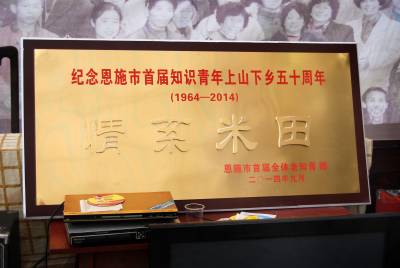 纪念恩施市首届知识青年上山下乡五十周年
(1964—2014)
情系米田
恩施市首届全体老知青 赠
二〇一四年九月